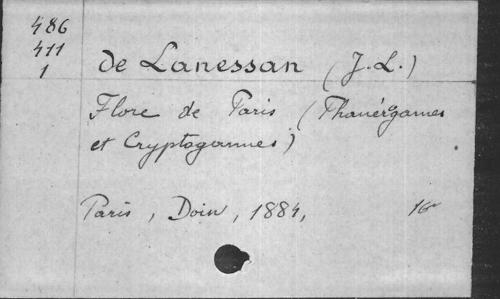 486
411
1
de Lanessan (J.L.)
Flore de Paris (Phanérogames
et Cryptogames)
Paris, Doin, 1884, 16º